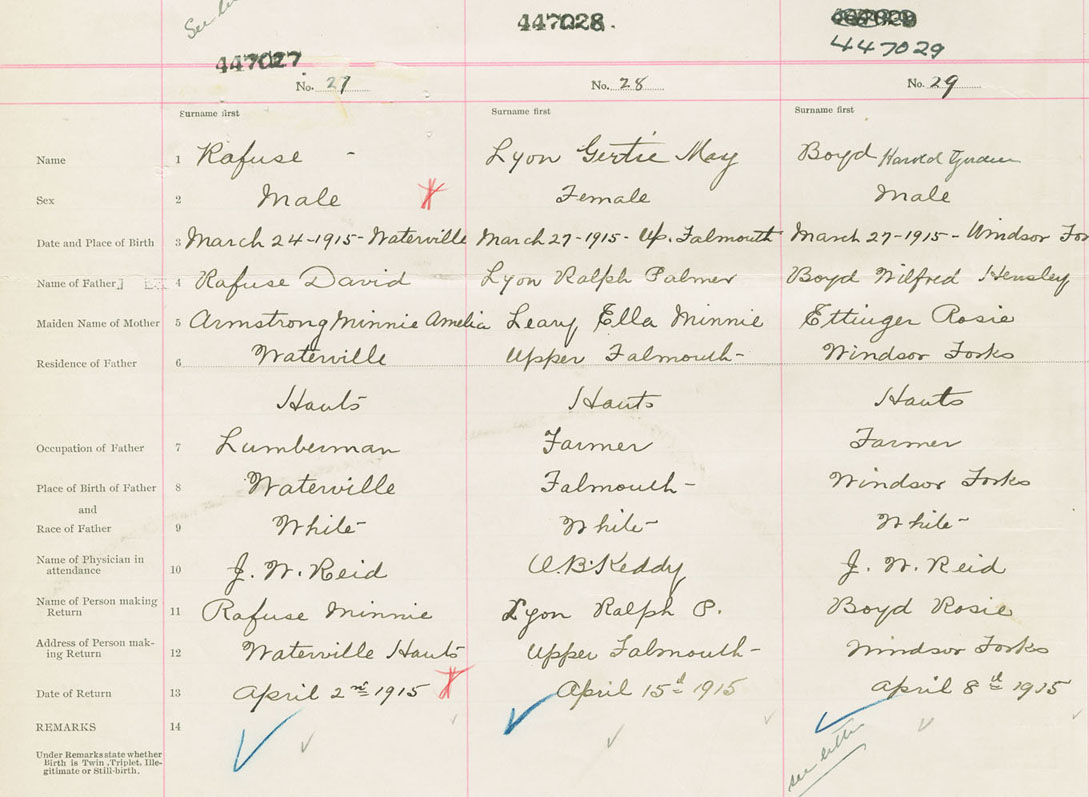 See
447028.
447029
447027
No. 27 No. 28 No. 29
Surname first Surname first Surname first
Name 1 Rafuse - Lyon Gertie May Boyd Harold
Sex 2 Male Female Male
Date and Place of Birth 3 March 24-1915-Waterville March 27-1915-Up. Falmouth March 27-1915-Windsor For
Name of Father 4 Rafuse David Lyon Ralph Palmer Boyd Wilfred Hensley
Maiden Name of Mother 5 Armstrong Minnie Amelia Leary Ella Minnie Ettinger Rosie
Residence of Father 6 Waterville Upper Falmouth- Windsor Forks
Hants Hants Hants
Occupation of Father 7 Lumberman Farmer Farmer
Place of Birth of Father 8 Waterville Falmouth- Windsor Forks
and
Race of Father 9 White- White- White-
Name of Physician in
attendance 10 J. W. Reid A.B. Keddy J. W. Reid
Name of Person making
Return 11 Rafuse Minnie Lyon Ralph P. Boyd Rosie
Address of Person mak-
ing Return 12 Waterville Hants Upper Falmouth- Windsor Forks
Date of Return 13 April 2nd 1915 April 15th 1915 April 8th 1915
REMARKS 14
Under Remarks state whether
Birth is Twin, Triplet, Ille-
gitimate or Still-birth.
see letter